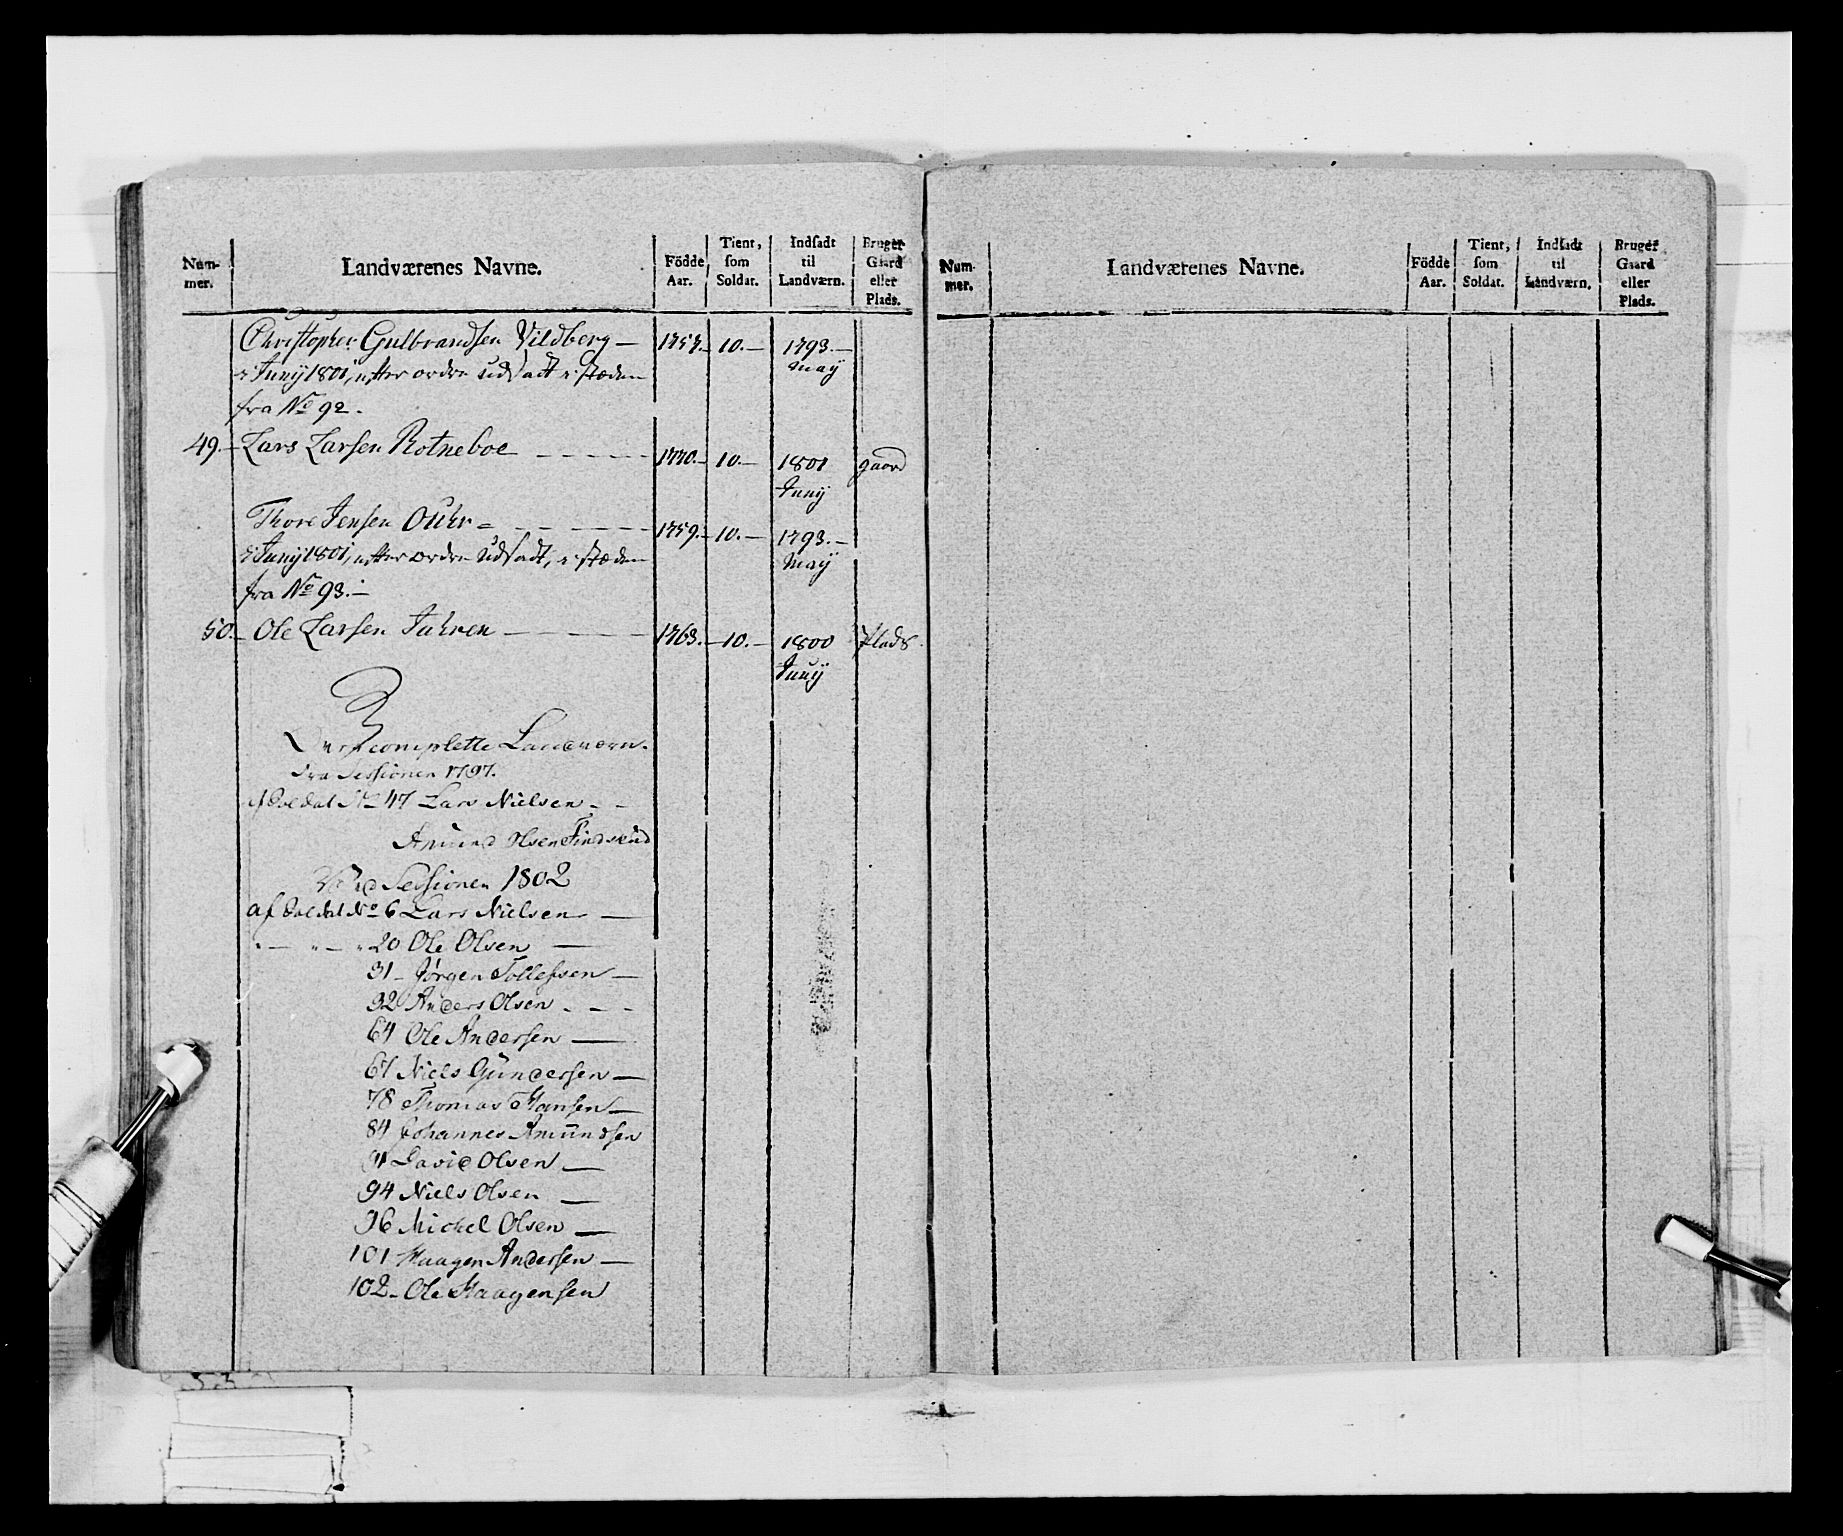 Num-
mer.
Landværenes Navne.
Fødde
Aar.
Tient,
som
Soldat.
Indsadt
til
Landværn.
Bruger
Gaard
eller
Plads.
Christopher Gulbrandsen Vildberg — 1757.— 10.— 1793.—
Junij 1801, efter ordre udsadt, i stæden May
fra No 92.
49.— Lars Larsen Rotneboe — — — — 1770.— 10.— 1801 gaard
Junij
Thore Jensen Ouhr — — — — 1759.— 10.— 1793.—
Junij 1801, efter ordre udsadt, i stæden May
fra No 93.—
50.— Ole Larsen Jahren — — — — 1763.— 10.— 1800 Plads
Junij
complette Landværn.
fra Sessionen 1797.
af Soldat No 47 Lars Nielsen - -
Amund Olsen
Sessionen 1802
af Soldat No 6 Lars Nielsen —
" — " — " 20 Ole Olsen —
31 - Jørgen Tollefsen —
32 Anders Olsen - - -
64 Ole Andersen —
67 Niels Gundersen —
78 Thomas Hansen —
84 Johannes Amundsen
91 David Olsen —
94 Niels Olsen —
96 Mickel Olsen —
101 Haagen Andersen —
102 - Ole Haagensen
Num-
mer.
Landværenes Navne.
Fødde
Aar.
Tient,
som
Soldat.
Indsadt
til
Landværn.
Bruger
Gaard
eller
Plads.